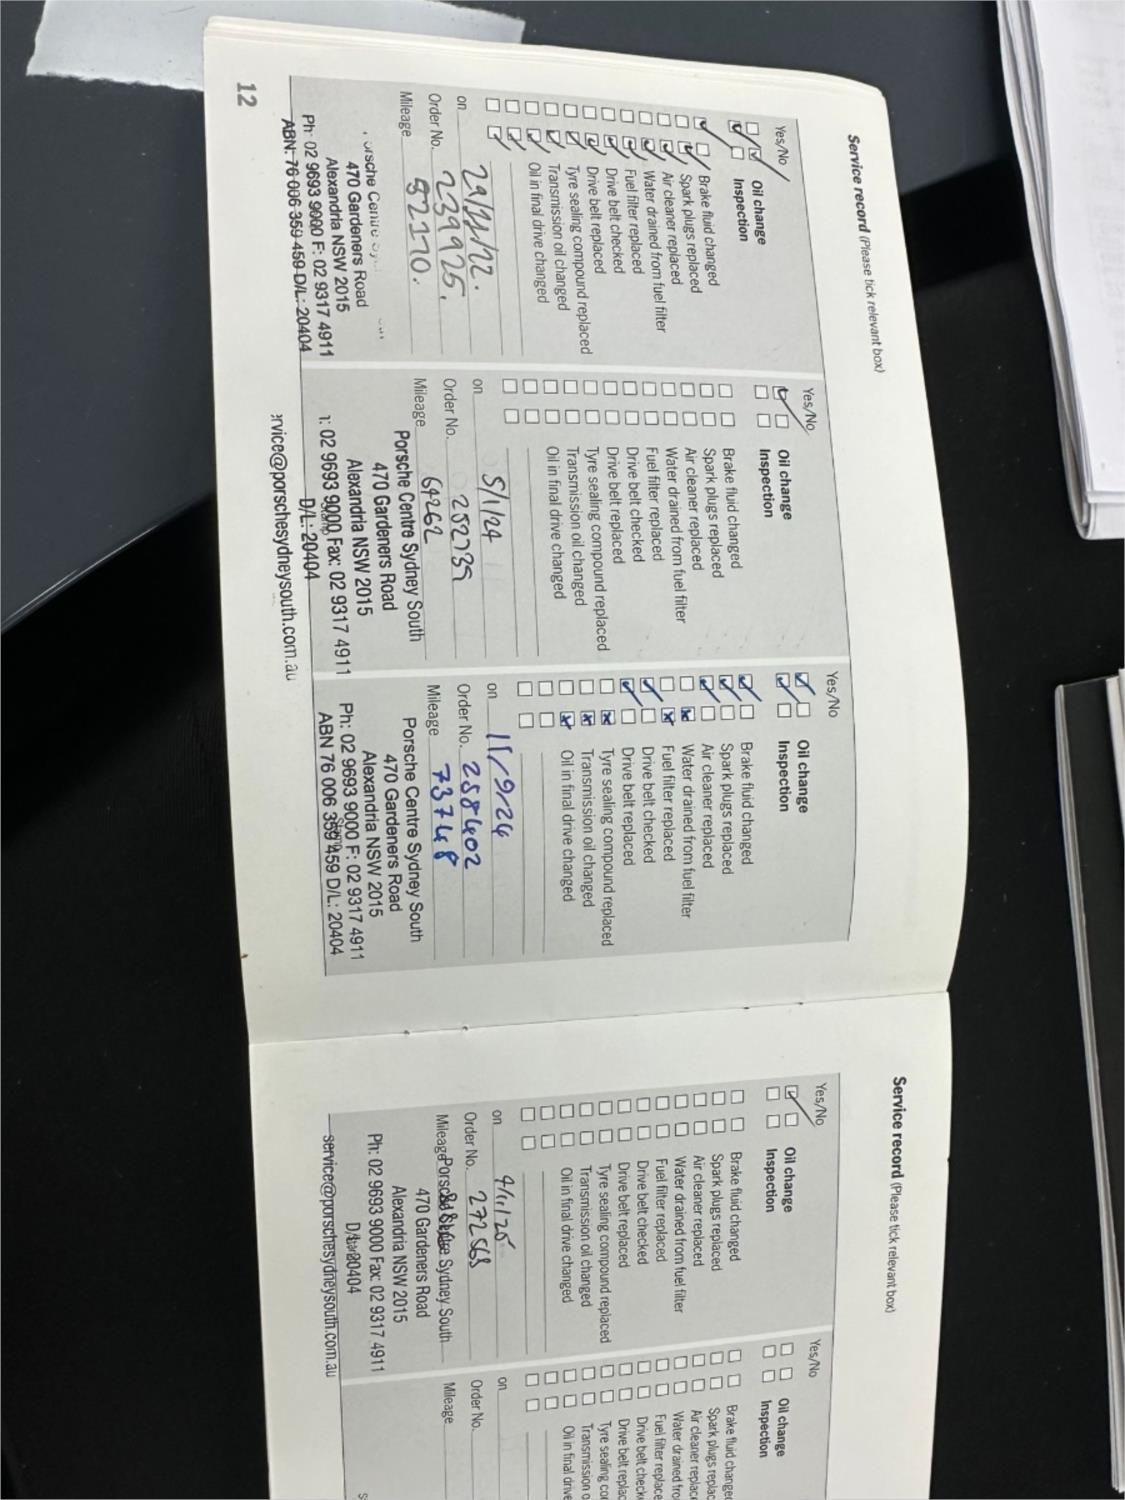 Service record (Please tick relevant box)
Yes/No
Oil change
Inspection
Brake fluid changed
Spark plugs replaced
Air cleaner replaced
Water drained from fuel filter
Fuel filter replaced
Drive belt checked
Drive belt replaced
Tyre sealing compound replaced
Transmission oil changed
Oil in final drive changed
on
Order No. 239925.
Mileage 52170.
470 Gardeners Road
Alexandria NSW 2015
Ph: 02 9693 9000 F: 02 9317 4911
ABN: 76 006 359 459 D/L: 20404
12
Yes/No
Oil change
Inspection
Brake fluid changed
Spark plugs replaced
Air cleaner replaced
Water drained from fuel filter
Fuel filter replaced
Drive belt checked
Drive belt replaced
Tyre sealing compound replaced
Transmission oil changed
Oil in final drive changed
on 5/1/24
Order No. 252735
Mileage 64262
Porsche Centre Sydney South
470 Gardeners Road
Alexandria NSW 2015
02 9693 9000 Fax: 02 9317 4911
D/L: 20404
rvice@porschesydneysouth.com.au
Yes/No
Oil change
Inspection
Brake fluid changed
Spark plugs replaced
Air cleaner replaced
Water drained from fuel filter
Fuel filter replaced
Drive belt checked
Drive belt replaced
Tyre sealing compound replaced
Transmission oil changed
Oil in final drive changed
on 11/9/24
Order No. 258402
Mileage 73748
Porsche Centre Sydney South
470 Gardeners Road
Alexandria NSW 2015
Ph: 02 9693 9000 F: 02 9317 4911
ABN 76 006 359 459 D/L: 20404
Service record (Please tick relevant box)
Yes/No
Oil change
Inspection
Brake fluid changed
Spark plugs replaced
Air cleaner replaced
Water drained from fuel filter
Fuel filter replaced
Drive belt checked
Drive belt replaced
Tyre sealing compound replaced
Transmission oil changed
Oil in final drive changed
on 4/11/25
Order No. 272563
Mileage
Sydney South
470 Gardeners Road
Alexandria NSW 2015
Ph: 02 9693 9000 Fax: 02 9317 4911
20404
service@porschesydneysouth.com.au
Yes/No
Oil change
Inspection
Brake fluid changed
Spark plugs replac
Air cleaner replac
Water drained fro
Fuel filter replace
Drive belt check
Drive belt replac
Tyre sealing co
Transmission o
Oil in final drive
on
Order No.
Mileage